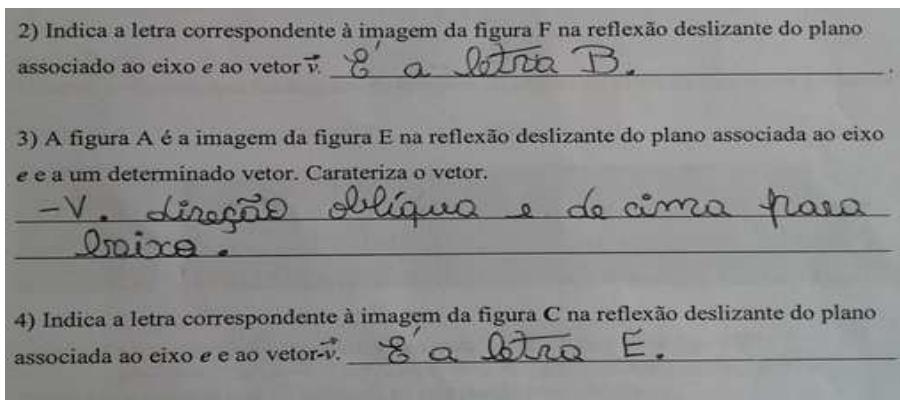 2) Indica a letra correspondente à imagem da figura F na reflexão deslizante do plano
associado ao eixo e ao vetor v⃗. É a letra B.
3) A figura A é a imagem da figura E na reflexão deslizante do plano associada ao eixo
e e a um determinado vetor. Carateriza o vetor.
-V. direção oblíqua e de cima para
baixo.
4) Indica a letra correspondente à imagem da figura C na reflexão deslizante do plano
associada ao eixo e e ao vetor-v⃗. É a letra E.